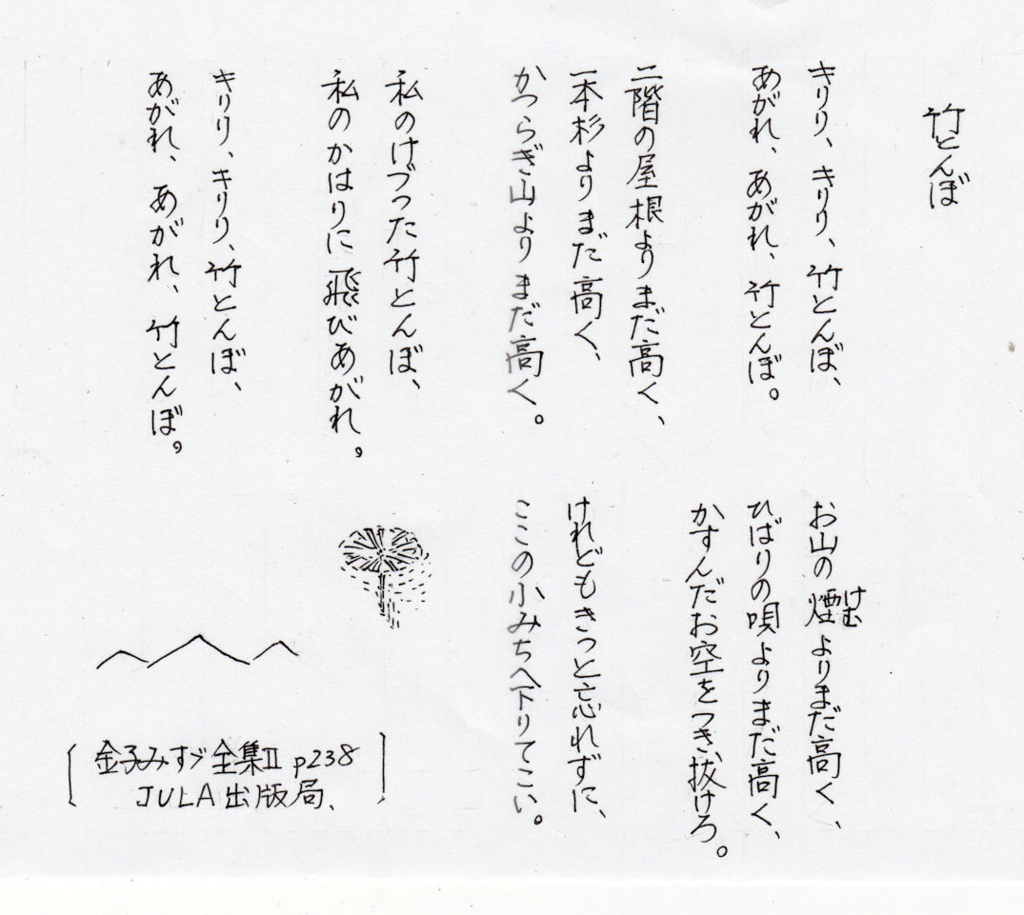 竹とんぼ
キリリ、キリリ、竹とんぼ、
あがれ、あがれ、竹とんぼ。
二階の屋根よりまだ高く、
一本杉よりまだ高く、
かつらぎ山よりまだ高く。
私のけづつた竹とんぼ、
私のかはりに飛びあがれ。
キリリ、キリリ、竹とんぼ、
あがれ、あがれ、竹とんぼ。
お山の煙よりまだ高く、
けむ
ひばりの唄よりまだ高く、
かすんだお空をつき抜けろ。
けれどもきつと忘れずに、
ここの小みちへ下りてこい。
[金子みすゞ全集II p238
JULA出版局、]